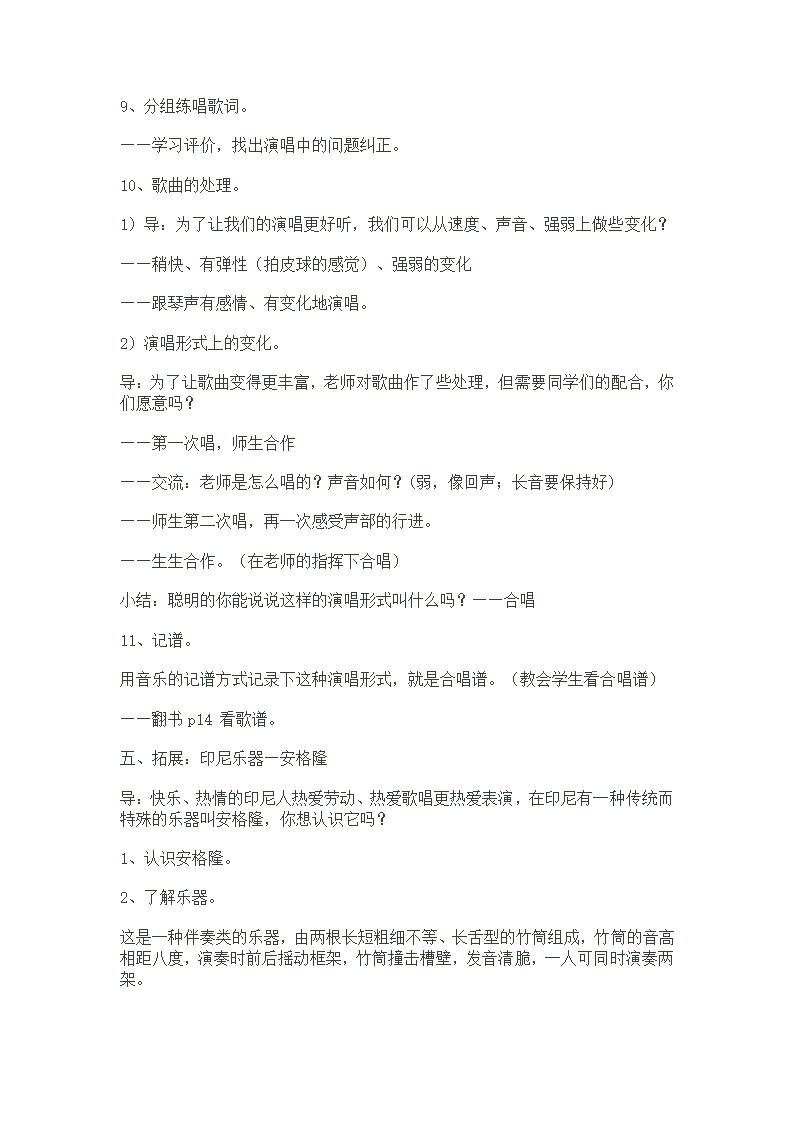 9、分组练唱歌词。
——学习评价，找出演唱中的问题纠正。
10、歌曲的处理。
1）导：为了让我们的演唱更好听，我们可以从速度、声音、强弱上做些变化？
——稍快、有弹性（拍皮球的感觉）、强弱的变化
——跟琴声有感情、有变化地演唱。
2）演唱形式上的变化。
导：为了让歌曲变得更丰富，老师对歌曲作了些处理，但需要同学们的配合，你
们愿意吗？
——第一次唱，师生合作
——交流：老师是怎么唱的？声音如何？（弱，像回声；长音要保持好）
——师生第二次唱，再一次感受声部的行进。
——生生合作。（在老师的指挥下合唱）
小结：聪明的你能说说这样的演唱形式叫什么吗？——合唱
11、记谱。
用音乐的记谱方式记录下这种演唱形式，就是合唱谱。（教会学生看合唱谱）
——翻书 p14 看歌谱。
五、拓展：印尼乐器—安格隆
导：快乐、热情的印尼人热爱劳动、热爱歌唱更热爱表演，在印尼有一种传统而
特殊的乐器叫安格隆，你想认识它吗？
1、认识安格隆。
2、了解乐器。
这是一种伴奏类的乐器，由两根长短粗细不等、长舌型的竹筒组成，竹筒的音高
相距八度，演奏时前后摇动框架，竹筒撞击槽壁，发音清脆，一人可同时演奏两
架。